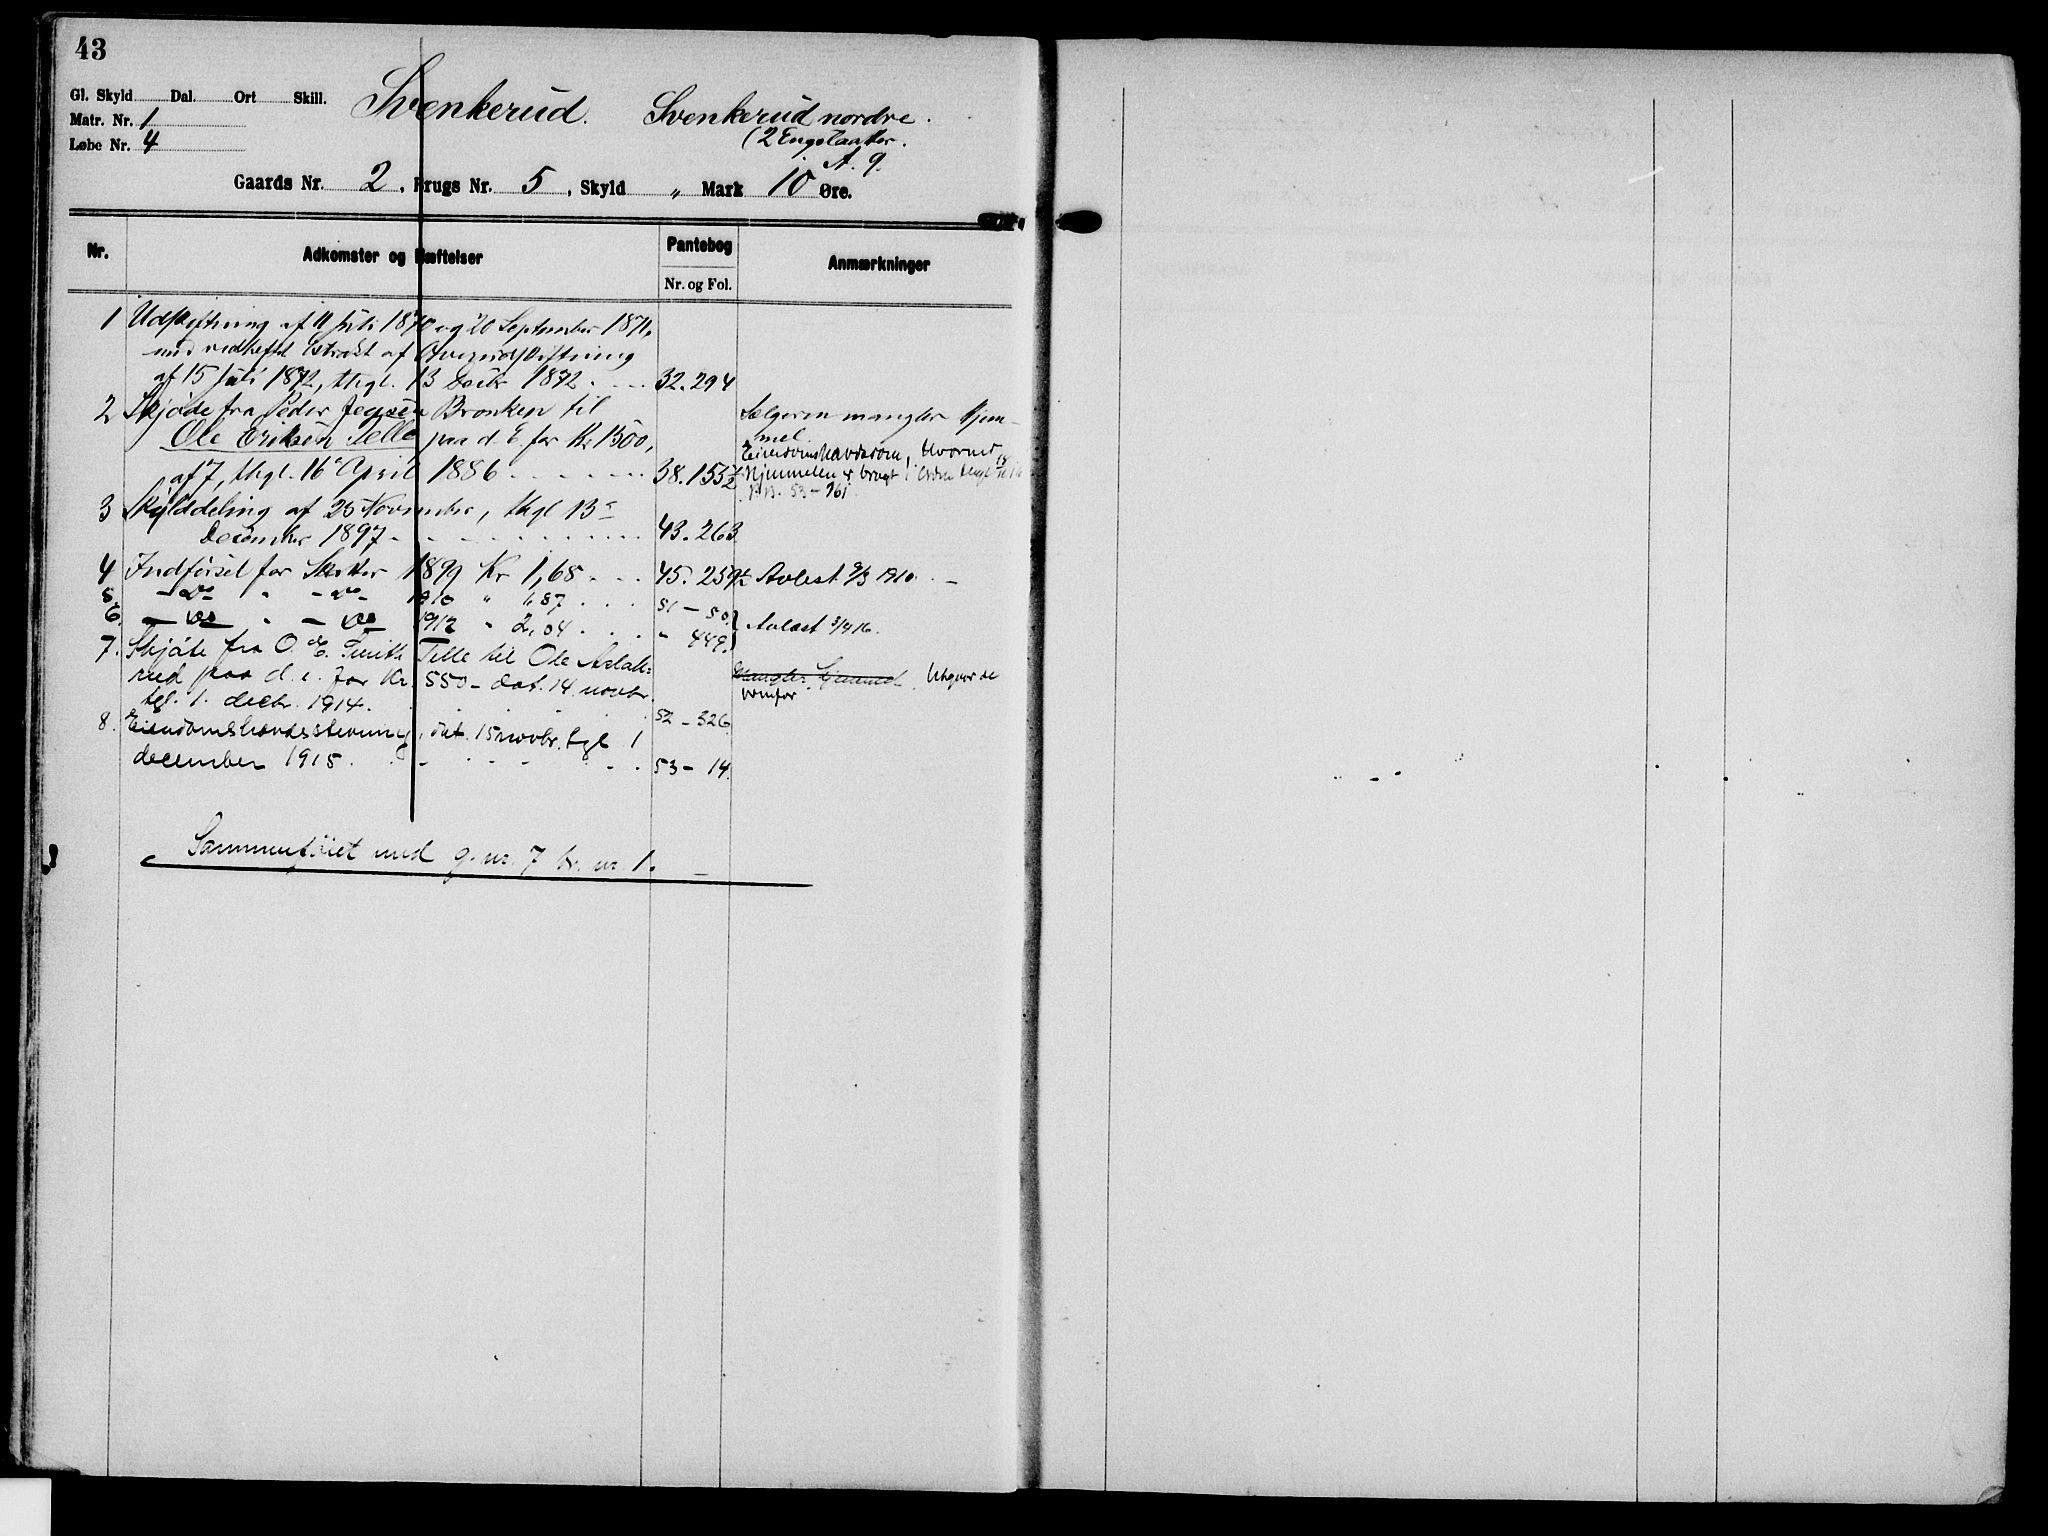 43
Gl. Skyld Dal. Ort Skill.
Matr. Nr. 1
Løbe Nr. 4
Svenkerud. Svenkerud nordre.
(2 Engetaatter.
A. 9.
Gaards Nr. 2, Brugs Nr. 5, Skyld " Mark 10 Øre.
Nr. Adkomster og Hæftelser Pantebog Anmærkninger
Nr. og Fol.
1 Udskiftning af 11 Juli 1870 og 20 September 1871,
med vedheftet Extrakt af Overudskiftning
af 15 Juli 1872, thgl. 13 Decbr 1872 . . . 32.294
2 Skjøde fra Peder Jensen Bronken til Sælgeren mangler Hjem-
Ole Eriksen Telle paa d. E. for Kr 1500, mel.
Eiendomshævdsdom, hvorved
af 7, thgl. 16 April 1886 . . . 38.155½ Hjemmelen er bragt i orden thgl
P.B. 53-961.
3 Skylddeling af 25 November, thgl 13de
December 1897 . . . 43.263
4 Indførsel for Skatter 1899 Kr 1,68 . . . 45.259½ Avlest 9/3 1910. –
5 – Do " – Do – 1910 " 1,87 . . . 51 – 50.
6. – Do " – Do 1912 " 2,04 . . . " 449. Avlæst 3/4 16.
7. Skjøte fra O. E. Telle til Ole Aslak-
rud paa d. e. for Kr. 550 – dat. 14 novbr. Mangler Hjemmel. Utgaar se
tgl. 1. decbr. 1914. . . . 52 – 326 ovenfor
8. Eiendomshævdsstevning, dat. 15 novbr. tgl 1
december 1915. . . . 53 – 14.
Sammenføiet med g. nr. 7 br. nr 1. –